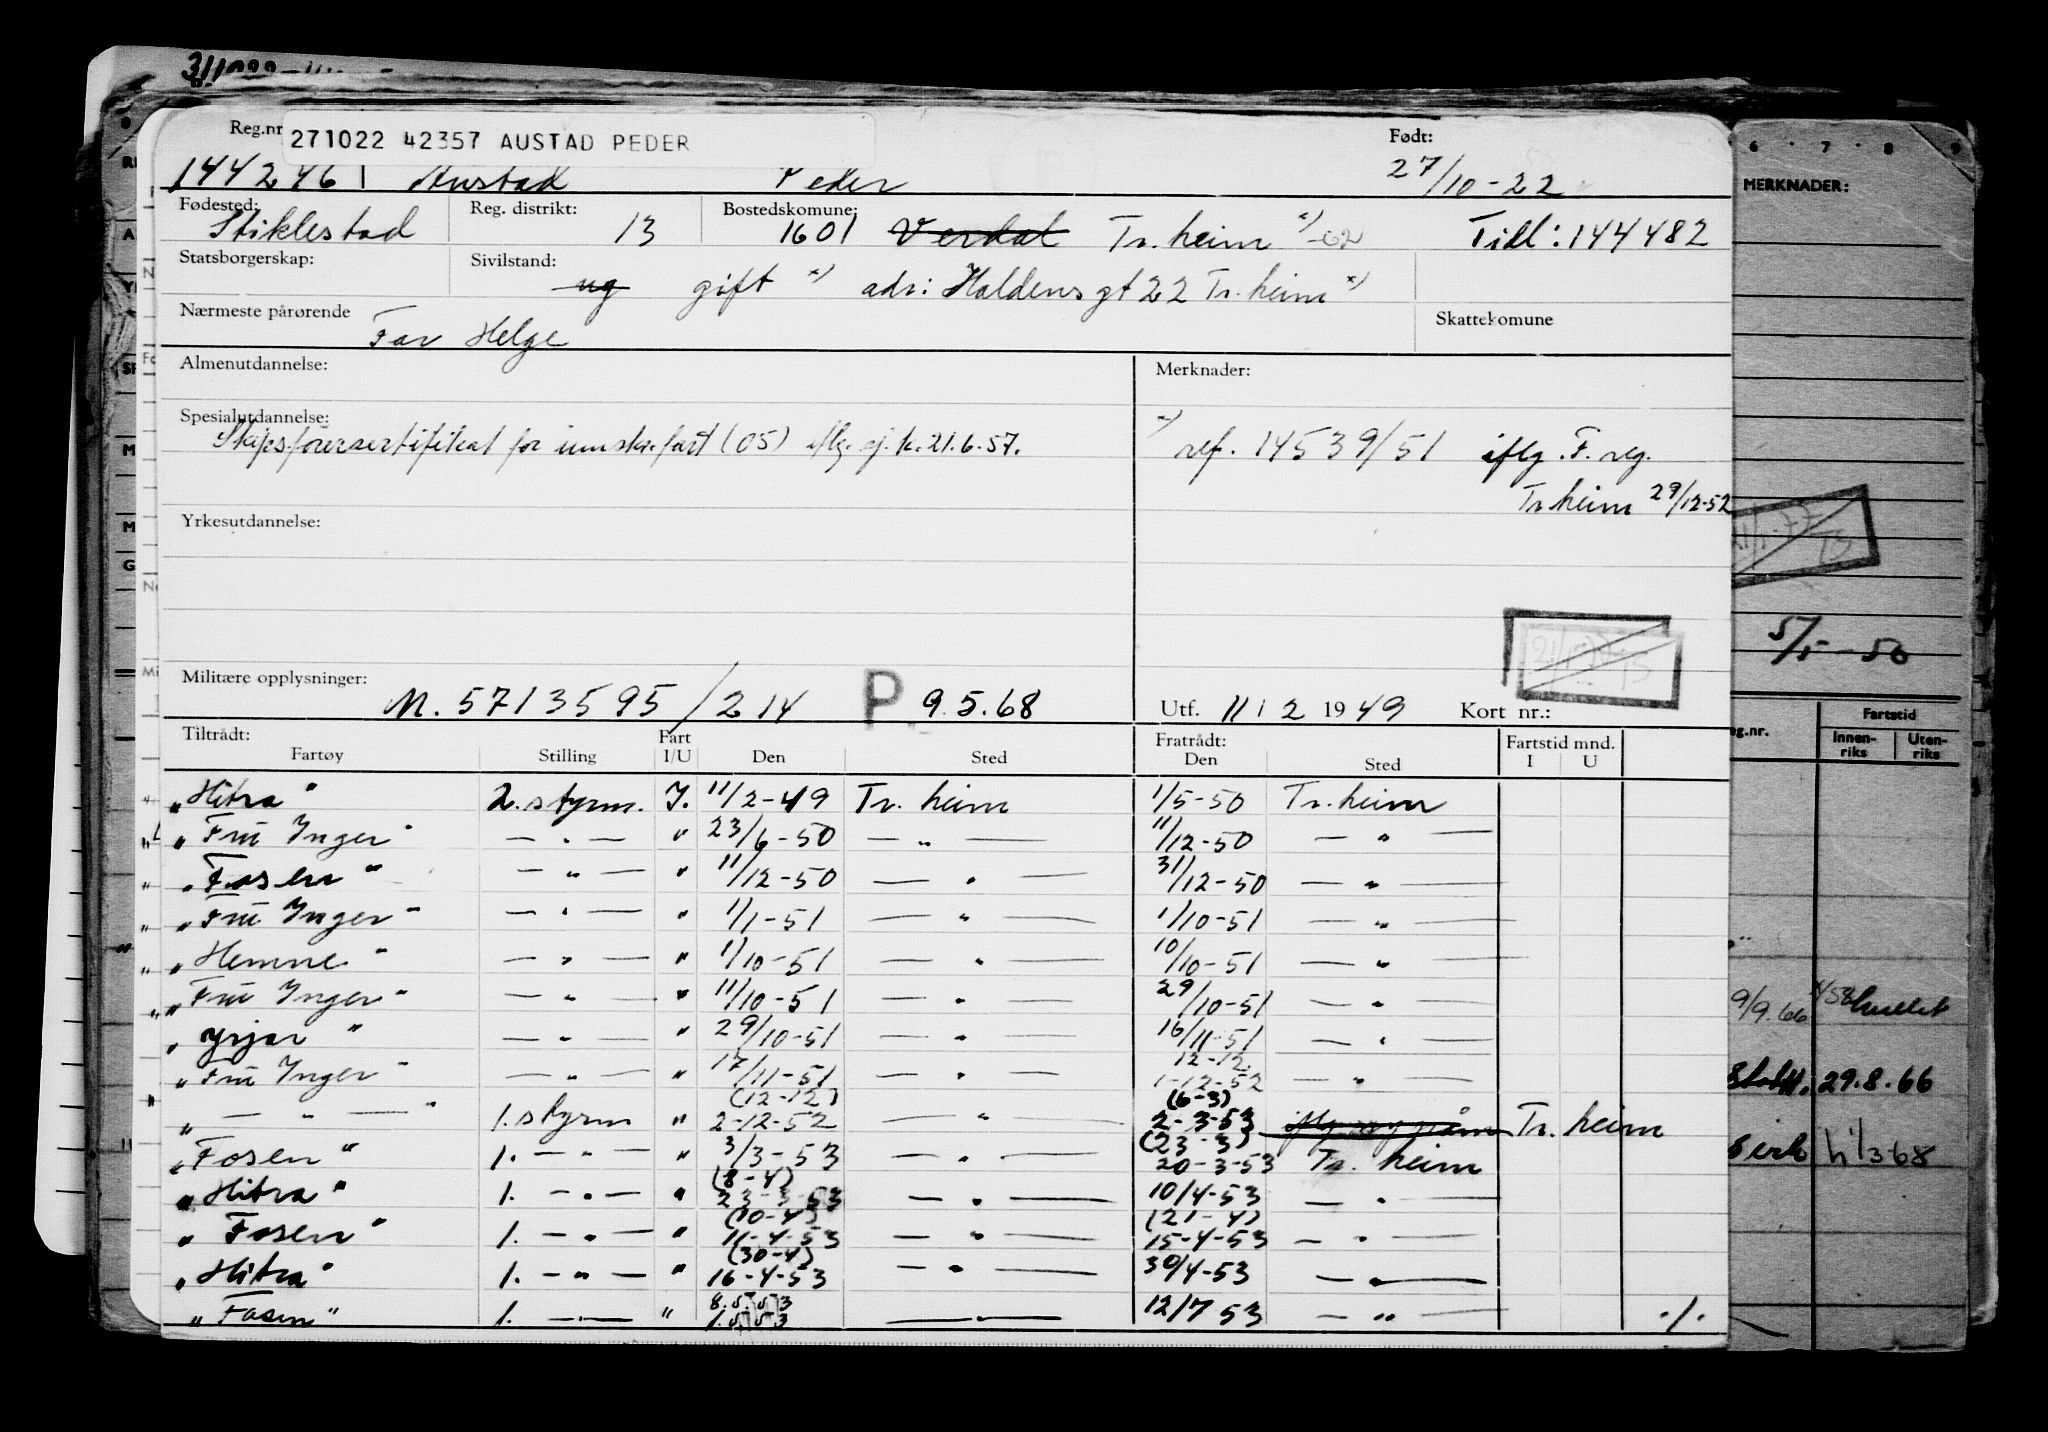 Reg.nr 271022 42357 AUSTAD PEDER Født:
1442461 Austad Peder 27/10-22
Fødested: Stiklestad Reg. distrikt: 13 Bostedskomune: 1601 Verdal Tr.heim x) -62 Till: 144482
Statsborgerskap: Sivilstand: ug gift x) adr: Haldens gt 22 Tr.heim x)
Nærmeste pårørende Far Helge Skattekomune
Almenutdannelse: Merknader:
Spesialutdannelse: Skipsførersertifikat for innskr. fart (05) iflg. sj.k. 21.6.57.
x) ref. 14539/51 iflg. F. reg.
Tr.heim 29/12-52
Yrkesutdannelse:
Militære opplysninger: M. 5713595/214 P 9.5.68 Utf. 11 / 2 1949 Kort nr.:
Tiltrådt: Fart Fratrådt: Fartstid mnd.
Fartøy Stilling I/U Den Sted Den Sted I U
"Hitra" 2. styrm. I. 11/2-49 Tr. heim 1/5-50 Tr. heim
"Fru Inger" — " — " 23/6-50 — " — 11/12-50 — " —
"Fosen" — " — " 11/12-50 — " — 31/12-50 — " —
"Fru Inger" — " — " 1/1-51 — " — 1/10-51 — " —
"Hemne" — " — " 1/10-51 — " — 10/10-51 — " —
"Fru Inger" — " — " 11/10-51 — " — 29/10-51 — " —
"Yrjar" — " — " 29/10-51 — " — 16/11-51 — " —
"Fru Inger" — " — " 17/11-51 — " — 12-12 1-12-52 — " —
" — " — " 1. styrm " (12-12) 2-12-52 — " — (6-3) 2-3-53 Tr. heim
"Fosen" 1. — " — " 3/3-53 — " — (23-3) 20-3-53 Tr. heim
"Hitra" 1. — " — " (8-4) 23-3-53 — " — 10/4-53 — " —
"Fosen" 1. — " — " (10-4) 11-4-53 — " — (21-4) 15-4-53 — " —
"Hitra" 1. — " — " (30-4) 16-4-53 — " — 30/4-53 — " —
"Fosen" 1. — " — " 8.5.53 1.5.53 — " — 12/7 53 — " — ./.
6 7 8 9
MERKNADER:
5/5-50
Fartstid
Innen-riks Uten-riks
9/9.66
29.8.66